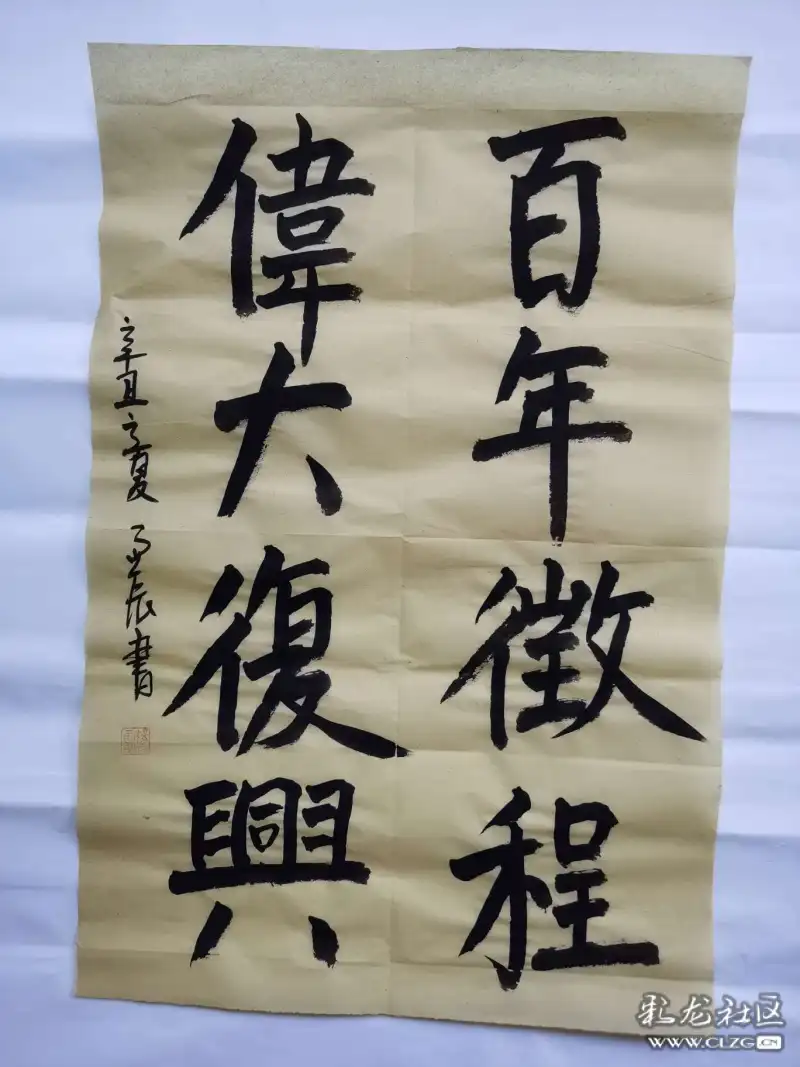 百年徵程
偉大復興
辛丑之夏
書
彩龙社区
WWW.CLZG.CN